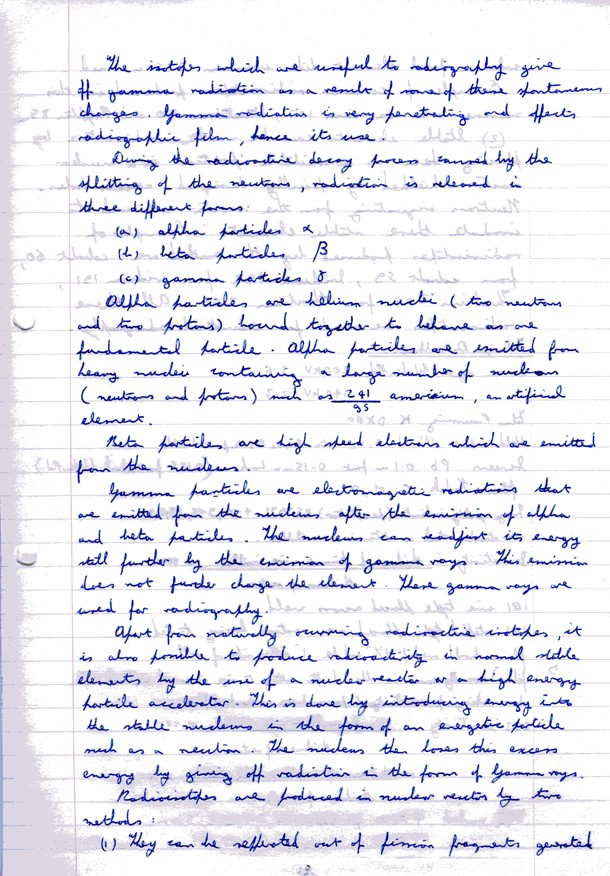 The isotopes which are useful to radiography give
off gamma radiation as a result of some of these spontaneous
changes. Gamma radiation is very penetrating and effects
radiographic film, hence its use.
During the radioactive decay process caused by the
splitting of the neutrons, radiation is released in
three different forms:
(a) alpha particles α
(b) beta particles β
(c) gamma particles γ
Alpha particles are helium nuclei (two neutrons
and two protons) bound together to behave as one
fundamental particle. Alpha particles are emitted from
heavy nuclei containing a large number of nucleons
(neutrons and protons) such as 241/95 americium, an artificial
element.
Beta particles are high speed electrons which are emitted
from the nucleus.
Gamma particles are electromagnetic radiations that
are emitted from the nucleus after the emission of alpha
and beta particles. The nucleus can readjust its energy
still further by the emission of gamma rays. This emission
does not further change the element. These gamma rays are
used for radiography.
Apart from naturally ocurring radioactive isotopes, it
is also possible to produce radioactivity in normal stable
elements by the use of a nuclear reactor or a high energy
particle accelerator. This is done by introducing energy into
the stable nucleus in the form of an energetic particle
such as a neutron. The nucleus then loses this excess
energy by giving off radiation in the form of Gamma rays.
Radioisotopes are produced in nuclear reactor by two
methods:
(1) They can be sepperated out of fission fragments generated